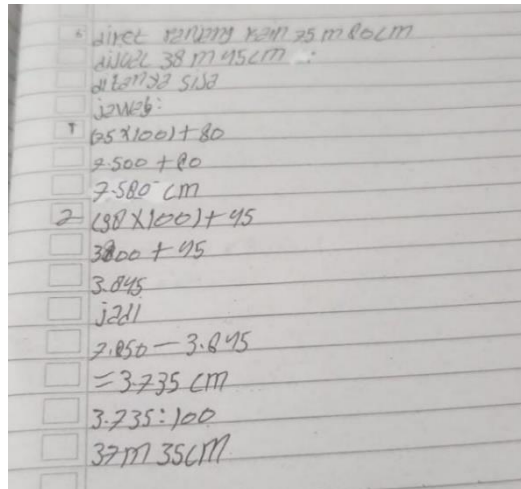 diket panjang kain 75 m 80 cm
dijual 38 m 45 cm :
ditanya sisa
jawab:
1 (75 × 100) + 80
7.500 + 80
7.580 cm
2 (38 × 100) + 45
3800 + 45
3.845
jadi
7.850 — 3.845
= 3.735 cm
3.735 : 100
37 m 35 cm